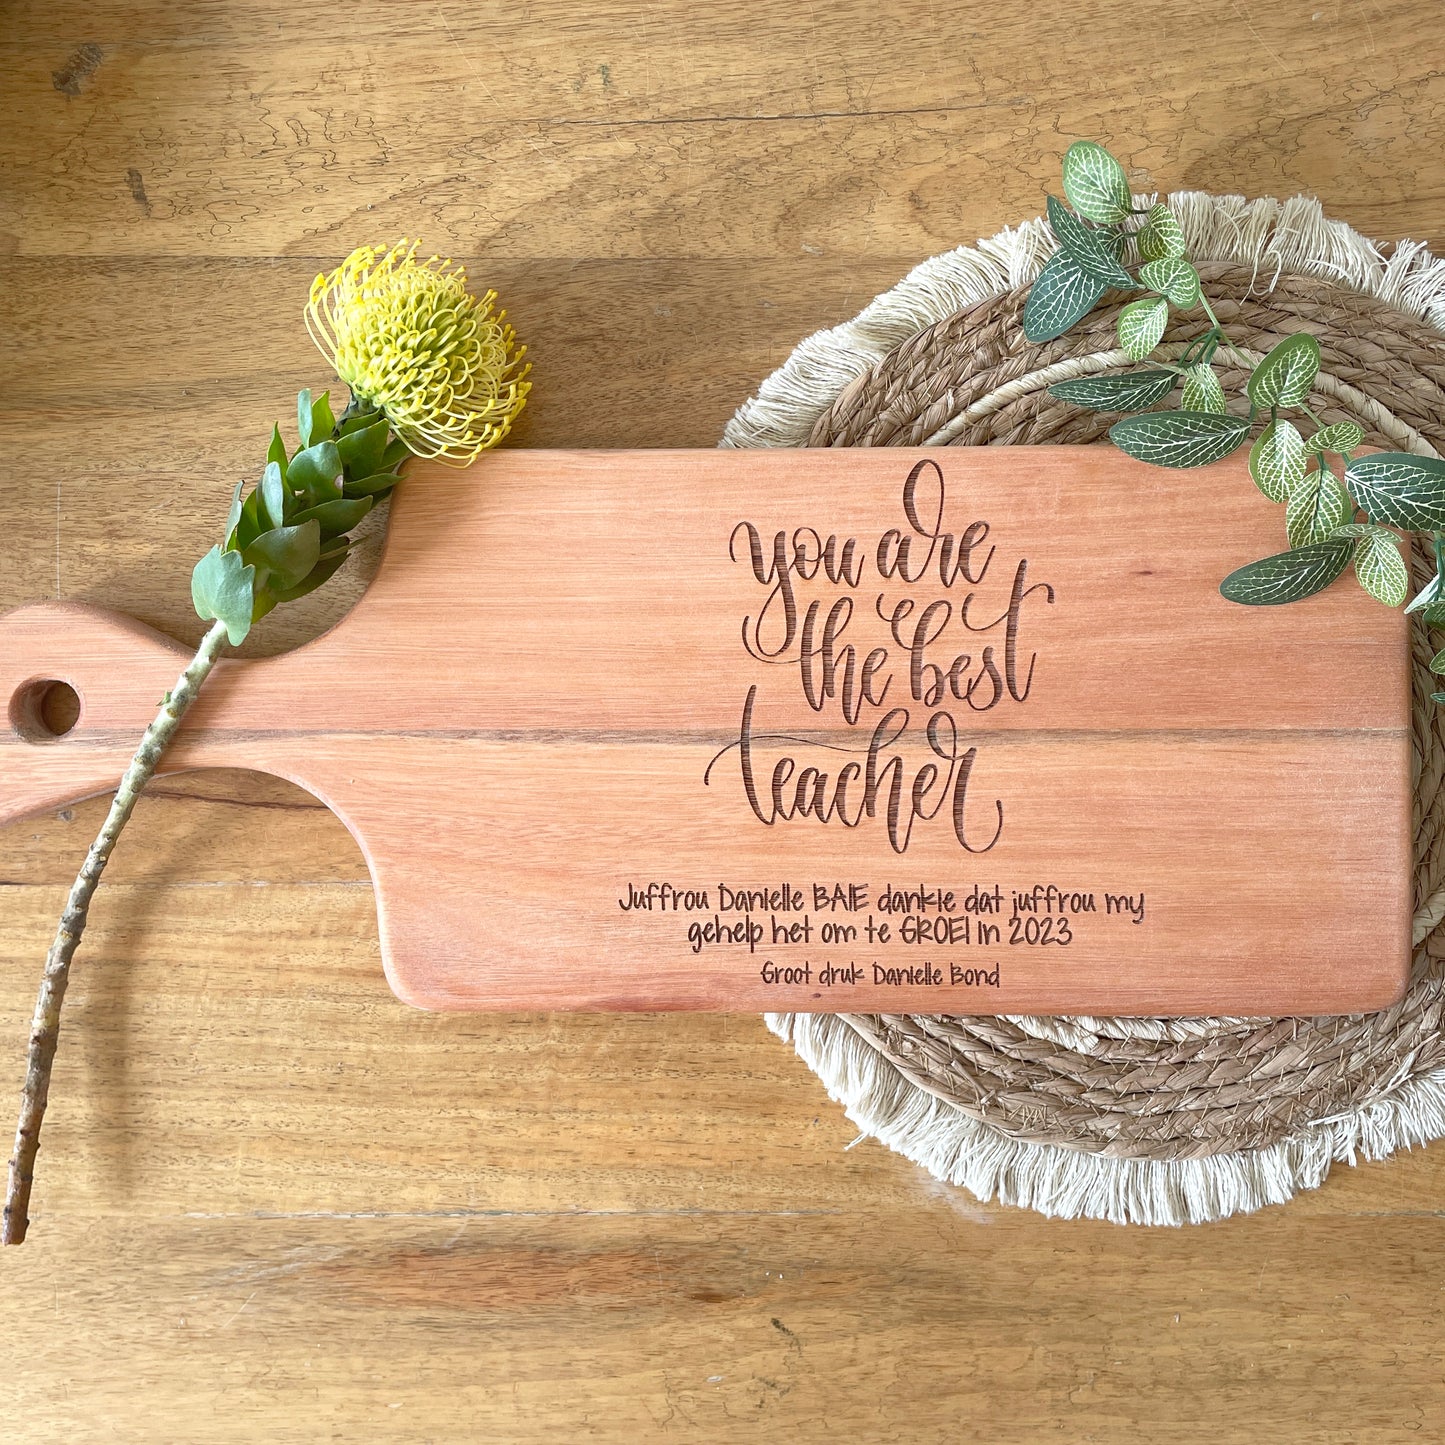 you are
the best
teacher
Juffrou Danielle BAIE dankie dat juffrou my
gehelp het om te GROEI in 2023
Groot druk Danielle Bond